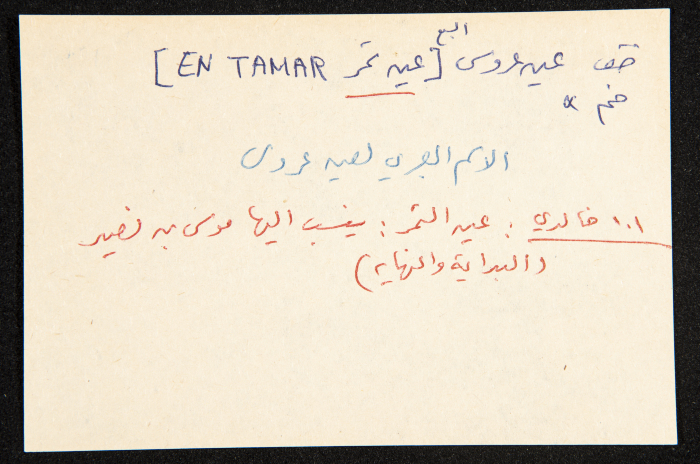 البع
عين عروس [عين تمر EN TAMAR]
الاسم العبري لعين عروس
ا.خالدي : عين التمر : ينسب اليها موسى بن نصير
(البداية والنهاية)